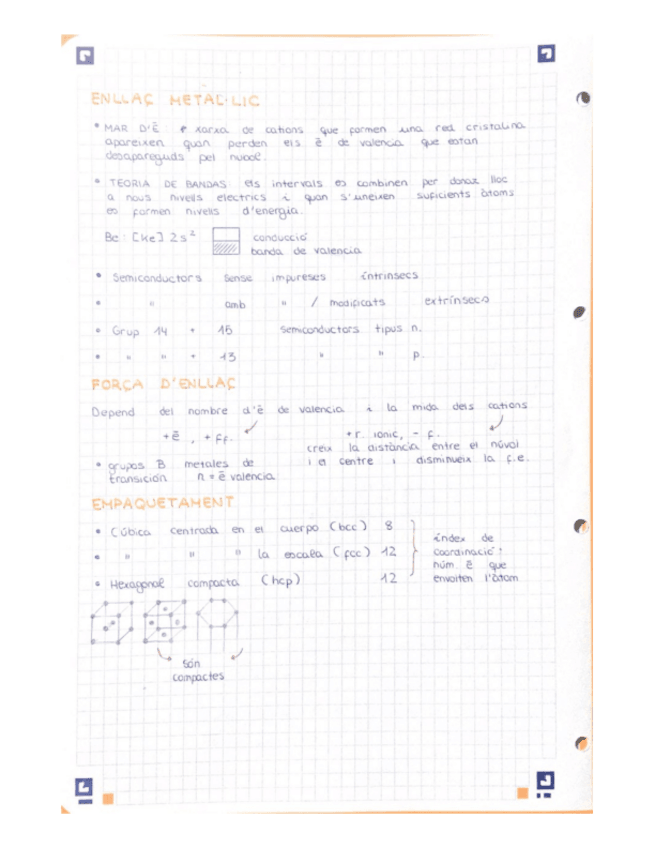 ENLLAÇ METAL·LIC
• MAR D'ē xarxa de cations que formen una red cristalina
apareixen quan perden els ē de valencia que estan
desapareguds pel nucel.
• TEORIA DE BANDAS: els intervals es combinen per donar lloc
a nous nivells electrics i quan s'uneixen suficients àtoms
es formen nivells d'energia.
Be: [He] 2s² conducció
banda de valencia
• Semiconductors sense impureses íntrinsecs
• " amb " / modificats extrínsecs
• Grup 14 + 15 semiconductors tipus n.
• " " + 13 " " p.
FORÇA D'ENLLAÇ
Depend del nombre d'ē de valencia i la mida dels cations
+ē, + Ff. +r. ionic, - f.
creix la distància entre el núvol
i el centre i disminueix la f.e.
• grupos B metales de
transición n + ē valencia
EMPAQUETAMENT
• Cúbica centrada en el cuerpo (bcc) 8
• " " " la escala (fcc) 12
• Hexagonal compacta (hcp) 12
índex de
coordinació:
núm ē que
envolten l'àtom
són
compactes